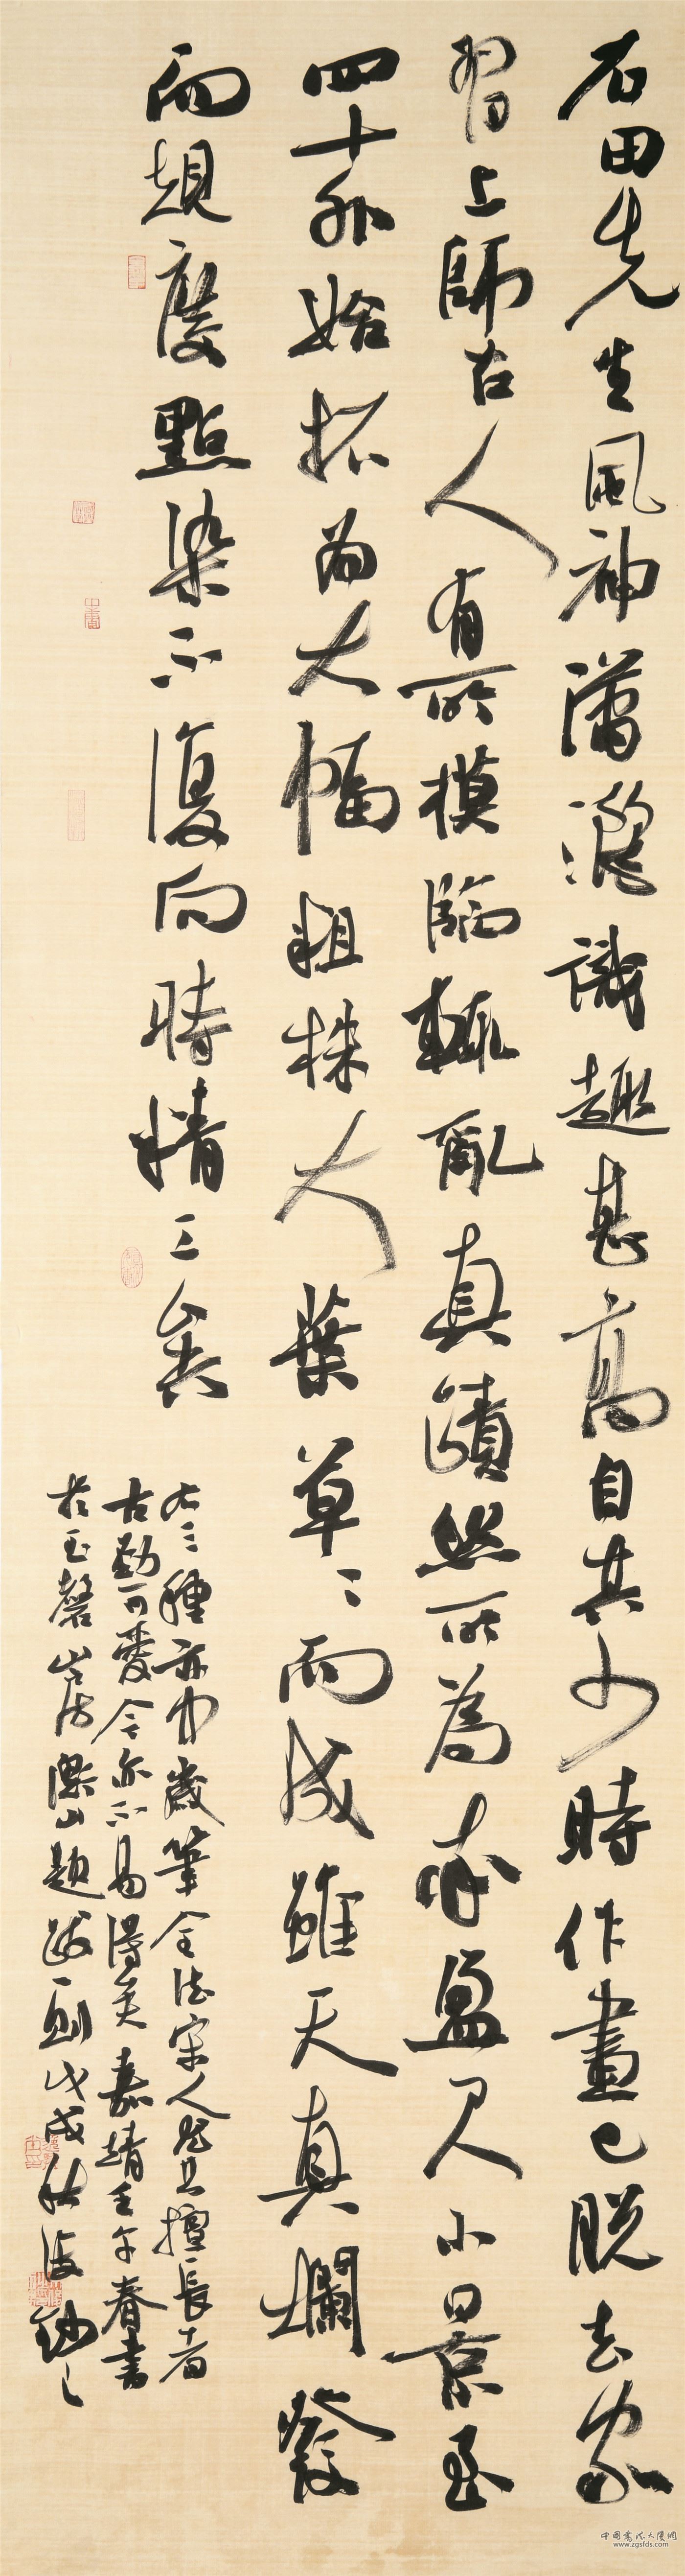 石田先生風神瀟灑識趣甚高自其少時作畫已脫去家
習上師古人有所模臨輒亂真蹟然所為率盈尺小景至
四十外始拓為大幅粗株大葉草〻而成雖天真爛發
而規度點染不復向時精工矣
右三種亦中歲筆全法宋人然且擅長者
古勁可愛今亦不易得矣嘉靖壬午春書
於玉磬山房 題跋一則戊戌秋
中国书法大厦网
www.zgsfds.com